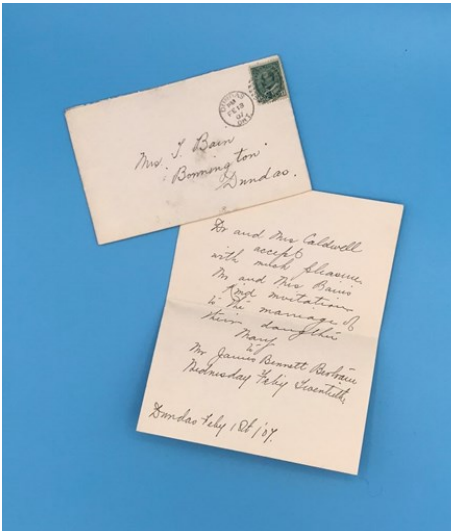 DUNDAS
PM
FE 19
07
ONT.
Mrs. T. Bain
Bonnington
Dundas.
Dr and Mrs Caldwell
accept
with much pleasure
Mr and Mrs Bain's
kind invitation
to the marriage of
their daughter
Mary
to
Mr James Bennett
Wednesday Feb'y Twentieth,
Dundas Feby '07.